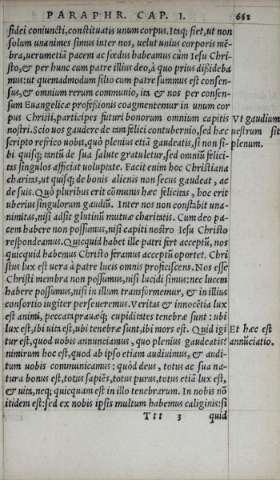 PARAPHR. CAP. I. 661
fidei coniuncti, constituatis unum corpus. Itaq; fiet, ut non
solum unanimes simus inter nos, uelut unius corporis mē-
bra, uerumetiā pacem ac fœdus habeamus cùm Iesu Chri-
sto, & per hunc cum patre illius deo, à quo prius dißideba
mus: ut quemadmodum filio cum patre summus est consen-
sus, & omnium rerum communio, ita & nos per consen-
sum Euangelicæ profeßionis coagmentemur in unum cor
pus Christi, participes futuri bonorum omnium capitis Vt gaudium
nostri. Scio uos gaudere de tam felici contubernio, sed hæc uestrum sit
scripto refrico uobis, quò plenius etiā gaudeatis, si non si- plenum.
bi quisq; tantū de sua salute gratuletur, sed omniū felici-
tas singulos afficiat uoluptate. Facit enim hoc Christiana
charitas, ut quisq; de bonis alienis non secus gaudeat, ac
de suis. Quò pluribus erit cōmunis hæc felicitas, hoc erit
uberius singulorum gaudiū. Inter nos non constabit una-
nimitas, nisi adsit glutinū mutuæ charitatis. Cum deo pa-
cem habere non possumus, nisi capiti nostro Iesu Christo
respondeamus. Quicquid habet ille patri fert acceptū, nos
quicquid habemus Christo feramus acceptū oportet. Chri
stus lux est uera à patre lucis omnis proficiscens. Nos esse
Christi membra non possumus, nisi lucidi simus: nec lucem
habere possumus, nisi in illum transformemur, & in illius
consortio iugiter perseueremus. Veritas & innocētia lux
est animi, peccata prauæq; cupiditates tenebræ sunt: ubi
lux est, ibi uita est, ubi tenebræ sunt, ibi mors est. Quid igi Et hæc est
tur est, quod uobis annunciamus, quo plenius gaudeatis? annūciatio.
nimirum hoc est, quod ab ipso etiam audiuimus, & audi-
tum uobis communicamus: quòd deus, totus ac sua na-
tura bonus est, totus sapiēs, totus purus, totus etiā lux est,
& uita, neq; quicquam est in illo tenebrarum. In nobis nō
itidem est: sed ex nobis ipsis multum habemus caliginis: si
TTt 3 quid